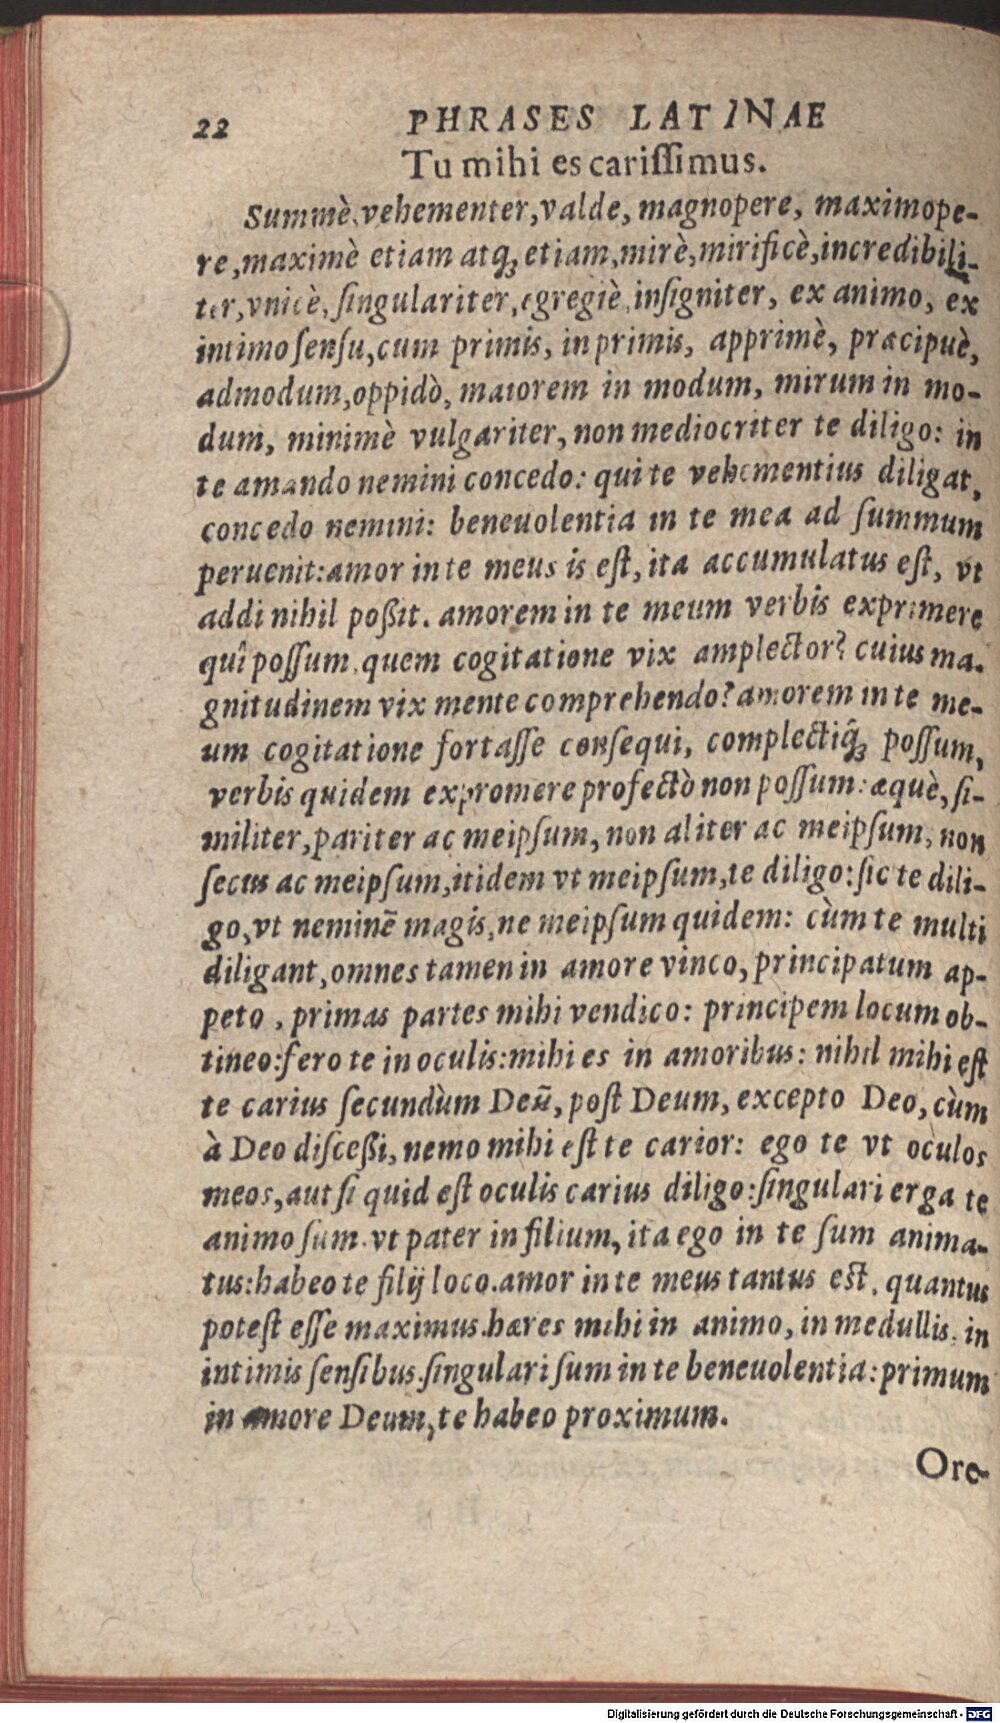 22 PHRASES LATINAE
Tu mihi es cariſſimus.
Summè, vehementer, valde, magnopere, maximope-
re, maximè etiam atq́; etiam, mirè, mirificè, incredibili-
ter, vnicè, ſingulariter, egregiè, inſigniter, ex animo, ex
intimo ſenſu, cum primis, in primis, apprimè, præcipuè,
admodum, oppidò, maiorem in modum, mirum in mo-
dum, minimè vulgariter, non mediocriter te diligo: in
te amando nemini concedo: qui te vehementius diligat,
concedo nemini: beneuolentia in te mea ad ſummum
peruenit: amor in te meus is eſt, ita accumulatus eſt, vt
addi nihil poßit. amorem in te meum verbis exprimere
quî poſſum, quem cogitatione vix amplector? cuius ma-
gnitudinem vix mente comprehendo? amorem in te me-
um cogitatione fortaſſe conſequi, complectiq́; poſſum,
verbis quidem expromere profectò non poſſum: æquè, ſi-
militer, pariter ac meipſum, non aliter ac meipſum, non
ſecus ac meipſum, itidem vt meipſum, te diligo: ſic te dili-
go, vt neminē magis, ne meipſum quidem: cùm te multi
diligant, omnes tamen in amore vinco, principatum ap-
peto, primas partes mihi vendico: principem locum ob-
tineo: fero te in oculis: mihi es in amoribus: nihil mihi eſt
te carius ſecundùm Deū, poſt Deum, excepto Deo, cùm
à Deo diſceßi, nemo mihi eſt te carior: ego te vt oculos
meos, aut ſi quid eſt oculis carius diligo: ſingulari erga te
animo ſum. vt pater in filium, ita ego in te ſum anima-
tus: habeo te filij loco. amor in te meus tantus eſt, quantus
poteſt eſſe maximus. hæres mihi in animo, in medullis, in
intimis ſenſibus. ſingulari ſum in te beneuolentia: primum
in amore Deum, te habeo proximum.
Ore-
Digitalisierung gefördert durch die Deutsche Forschungsgemeinschaft - DFG